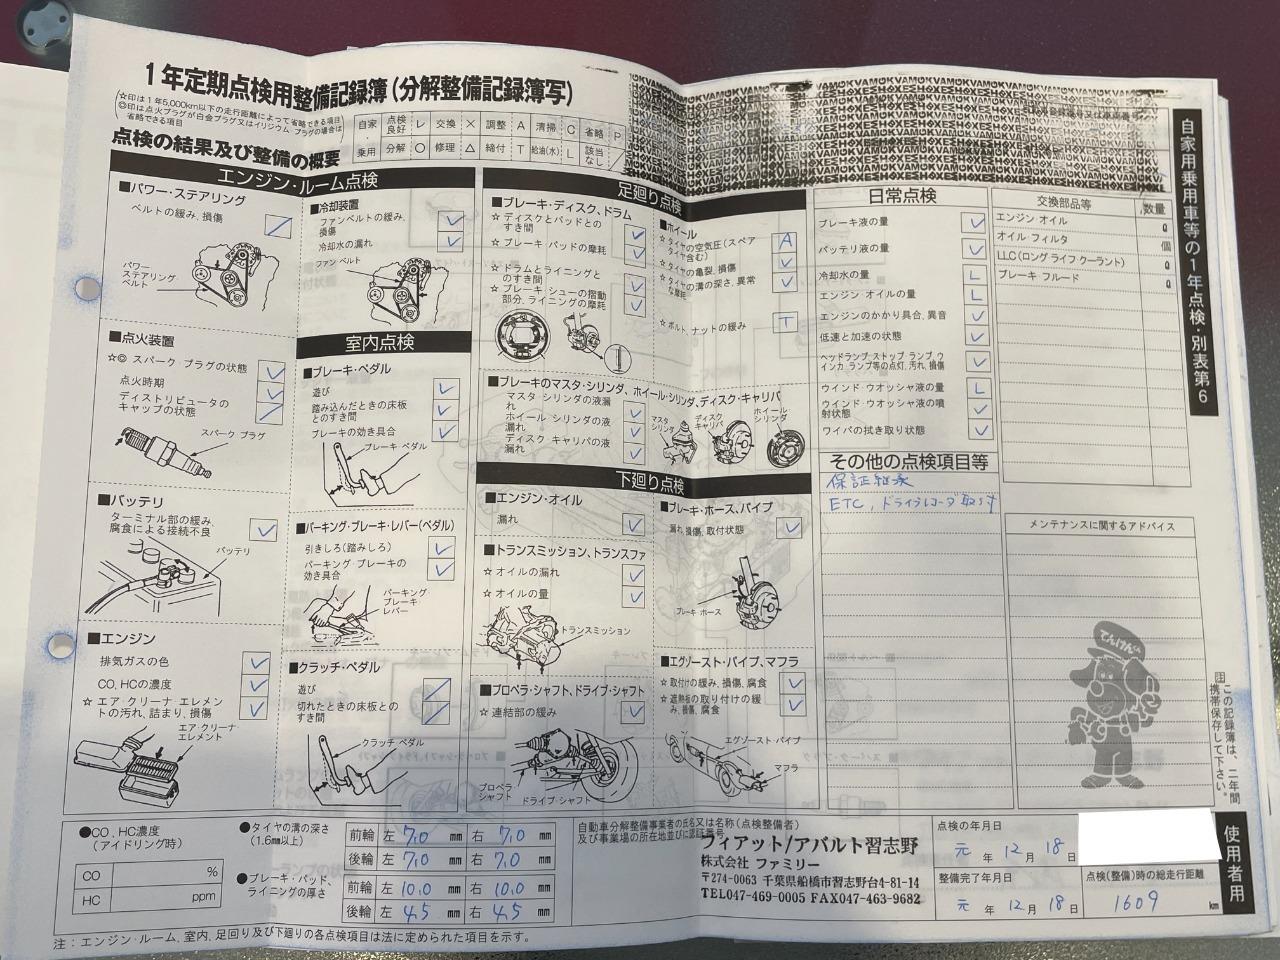 1年定期点検用整備記録簿(分解整備記録簿写)
☆印は1年5,000km以下の走行距離によって省略できる項目
◎印は点火プラグが白金プラグ又はイリジウム プラグの場合は
省略できる項目
自家 点検良好 レ 交換 × 調整 A 清掃 C 省略 P
乗用 分解 ○ 修理 △ 締付 T 給油(水) L 該当なし /
点検の結果及び整備の概要
自家用乗用車等の1年点検・別表第6
エンジン・ルーム点検
■パワー・ステアリング
ベルトの緩み、損傷 /
パワー
ステアリング
ベルト
■点火装置
☆◎ スパーク プラグの状態 レ
点火時期 レ
ディストリビュータの
キャップの状態 /
スパーク プラグ
■バッテリ
ターミナル部の緩み、
腐食による接続不良 レ
バッテリ
■エンジン
排気ガスの色 レ
CO、HCの濃度 レ
☆ エア クリーナ エレメン
トの汚れ、詰まり、損傷 レ
エア クリーナ
エレメント
■冷却装置
ファンベルトの緩み、
損傷 レ
冷却水の漏れ レ
ファン ベルト
室内点検
■ブレーキ・ペダル
遊び レ
踏み込んだときの床板
とのすき間 レ
ブレーキの効き具合 レ
ブレーキ ペダル
■パーキング・ブレーキ・レバー(ペダル)
引きしろ(踏みしろ) レ
パーキング・ブレーキの
効き具合 レ
パーキング・
ブレーキ
レバー
■クラッチ・ペダル
遊び /
切れたときの床板との
すき間 /
クラッチ ペダル
足廻り点検
■ブレーキ・ディスク、ドラム
☆ ディスクとパッドとの
すき間 レ
☆ ブレーキ パッドの摩耗 レ
☆ ドラムとライニングと
のすき間 レ
☆ ブレーキ シューの摺動
部分、ライニングの摩耗 レ
■ホイール
☆ タイヤの空気圧(スペア
タイヤ含む) A
☆ タイヤの亀裂、損傷 レ
☆ タイヤの溝の深さ、異常
な摩耗 レ
☆ ボルト、ナットの緩み T
■ブレーキのマスタ・シリンダ、ホイール・シリンダ、ディスク・キャリパ
マスタ シリンダの液漏
れ レ
ホイール シリンダの液
漏れ レ
ディスク キャリパの液
漏れ レ
マスタ
シリンダ
ディスク
キャリパ
ホイール
シリンダ
下廻り点検
■エンジン・オイル
漏れ レ
■トランスミッション、トランスファ
☆ オイルの漏れ レ
☆ オイルの量 レ
トランスミッション
■プロペラ・シャフト、ドライブ・シャフト
☆ 連結部の緩み レ
プロペラ・
シャフト
ドライブ・シャフト
■ブレーキ・ホース、パイプ
漏れ、損傷、取付状態 レ
ブレーキ ホース
■エグゾースト・パイプ、マフラ
☆ 取付けの緩み、損傷、腐食 レ
☆ 遮熱板の取り付けの緩
み、損傷、腐食 レ
エグゾースト・パイプ
マフラ
日常点検
ブレーキ液の量 レ
バッテリ液の量 レ
冷却水の量 L
エンジン オイルの量 L
エンジンのかかり具合、異音 レ
低速と加速の状態 レ
ヘッドランプ、ストップ ランプ、ウ
インカ ランプ等の点灯、汚れ、損傷 レ
ウインド ウオッシャ液の量 L
ウインド ウオッシャ液の噴
射状態 レ
ワイパの拭き取り状態 レ
その他の点検項目等
保証継承
ETC、ドライブレコーダ取付
交換部品等 数量
エンジン オイル ℓ
オイル フィルタ 個
LLC(ロング ライフ クーラント) ℓ
ブレーキ フルード ℓ
メンテナンスに関するアドバイス
てんけんくん
注 この記録簿は、二年間
携帯保存して下さい。
使用者用
●CO、HC濃度
(アイドリング時)
CO %
HC ppm
●タイヤの溝の深さ
(1.6mm以上)
前輪 左 7.0 mm 右 7.0 mm
後輪 左 7.0 mm 右 7.0 mm
●ブレーキ・パッド、
ライニングの厚さ
前輪 左 10.0 mm 右 10.0 mm
後輪 左 4.5 mm 右 4.5 mm
自動車分解整備事業者の氏名又は名称(点検整備者)
及び事業場の所在地並びに認証番号
フィアット/アバルト習志野
株式会社 ファミリー
〒274-0063 千葉県船橋市習志野台4-81-14
TEL047-469-0005 FAX047-463-9682
点検の年月日
元 年 12 月 18 日
整備完了年月日
元 年 12 月 18 日
点検(整備)時の総走行距離
1609 km
注：エンジン・ルーム、室内、足回り及び下廻りの各点検項目は法に定められた項目を示す。